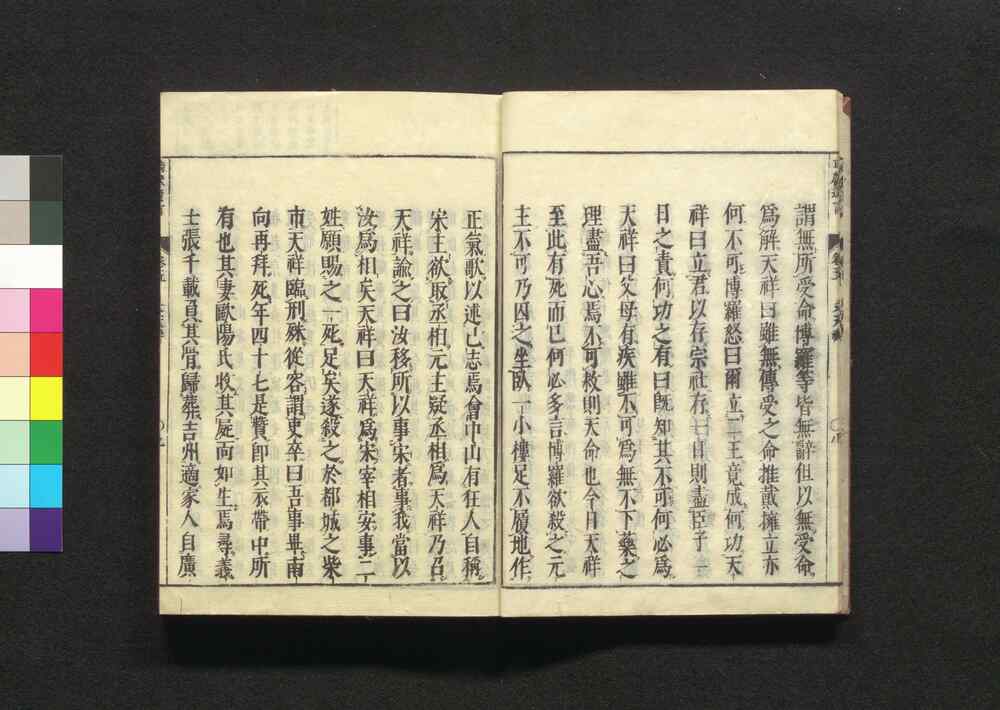 謂無所受命博羅等皆無辭但以無受命
爲解天祥曰雖無傳受之命推戴擁立亦
何不可博羅怒曰爾立二王竟成何功天
祥曰立君以存宗社存一日則盡臣子一
日之責何功之有曰旣知其不可何必爲
天祥曰父母有疾雖不可爲無不下藥之
理盡吾心焉不可救則天命也今日天祥
至此有死而已何必多言博羅欲殺之元
主不可乃囚之坐臥一小樓足不履地作
正氣歌以述己志焉會中山有狂人自稱
宋主欲取丞相元主疑丞相爲天祥乃召
天祥諭之曰汝移所以事宋者事我當以
汝爲相矣天祥曰天祥爲宋宰相安事二
姓願賜之一死足矣遂殺之於都城之柴
市天祥臨刑殊從容謂吏卒曰吾事畢南
向再拜死年四十七是贊卽其衣帶中所
有也其妻歐陽氏收其屍面如生焉尋義
士張千載負其骨歸葬吉州適家人自廣